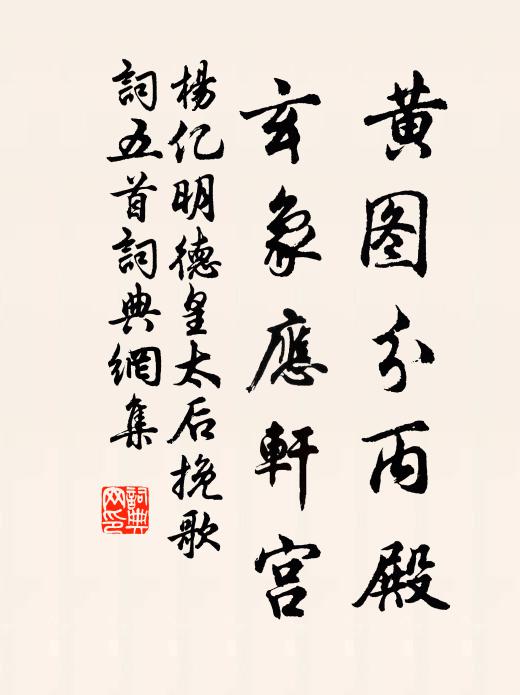 黄图分丙殿
玄象應軒宫
楊亿明德皇太后挽歌
詞五首詞典網集
詞典
网印